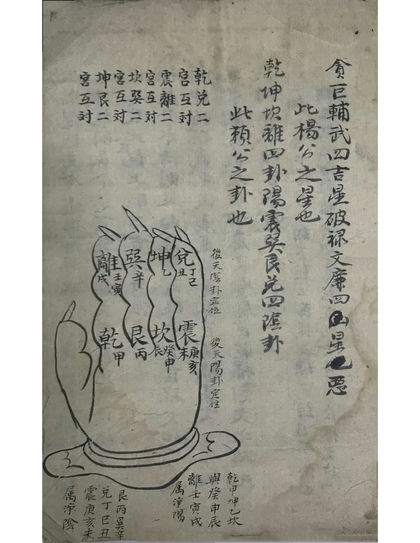 貪巨輔武四吉星破祿文廉四凶星也惡
此楊公之星也
乾坤坎離四卦陽震巽艮兌四陰卦
此賴公之卦也
乾兌二宮互对
震離二宮互对
坎巽二宮互对
坤艮二宮互对
兌丁巳丑
坤乙
巽辛
離壬寅戌
震庚亥未
坎癸申辰
艮丙
乾甲
後天陰卦定位
後天陽卦定位
乾甲坤乙坎
與癸申辰
離壬寅戌
属淨陽
艮丙巽辛
兌丁巳丑
震庚亥未
属淨陰